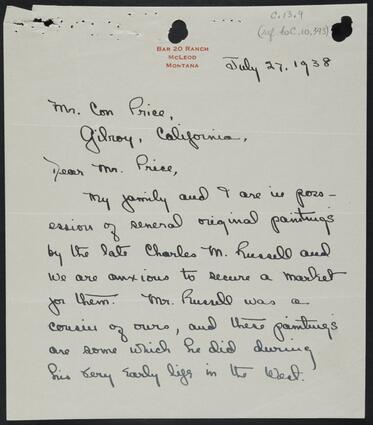 C.13.9
(ref. to C.10.393)
BAR 20 RANCH
McLEOD
MONTANA
July 27, 1938
Mr. Con Price,
Gilroy, California,
Dear Mr. Price,
My family and I are in poss-
ession of several original paintings
by the late Charles M. Russell and
we are anxious to secure a market
for them. Mr. Russell was a
cousin of ours, and these paintings
are some which he did during
his very early life in the West.